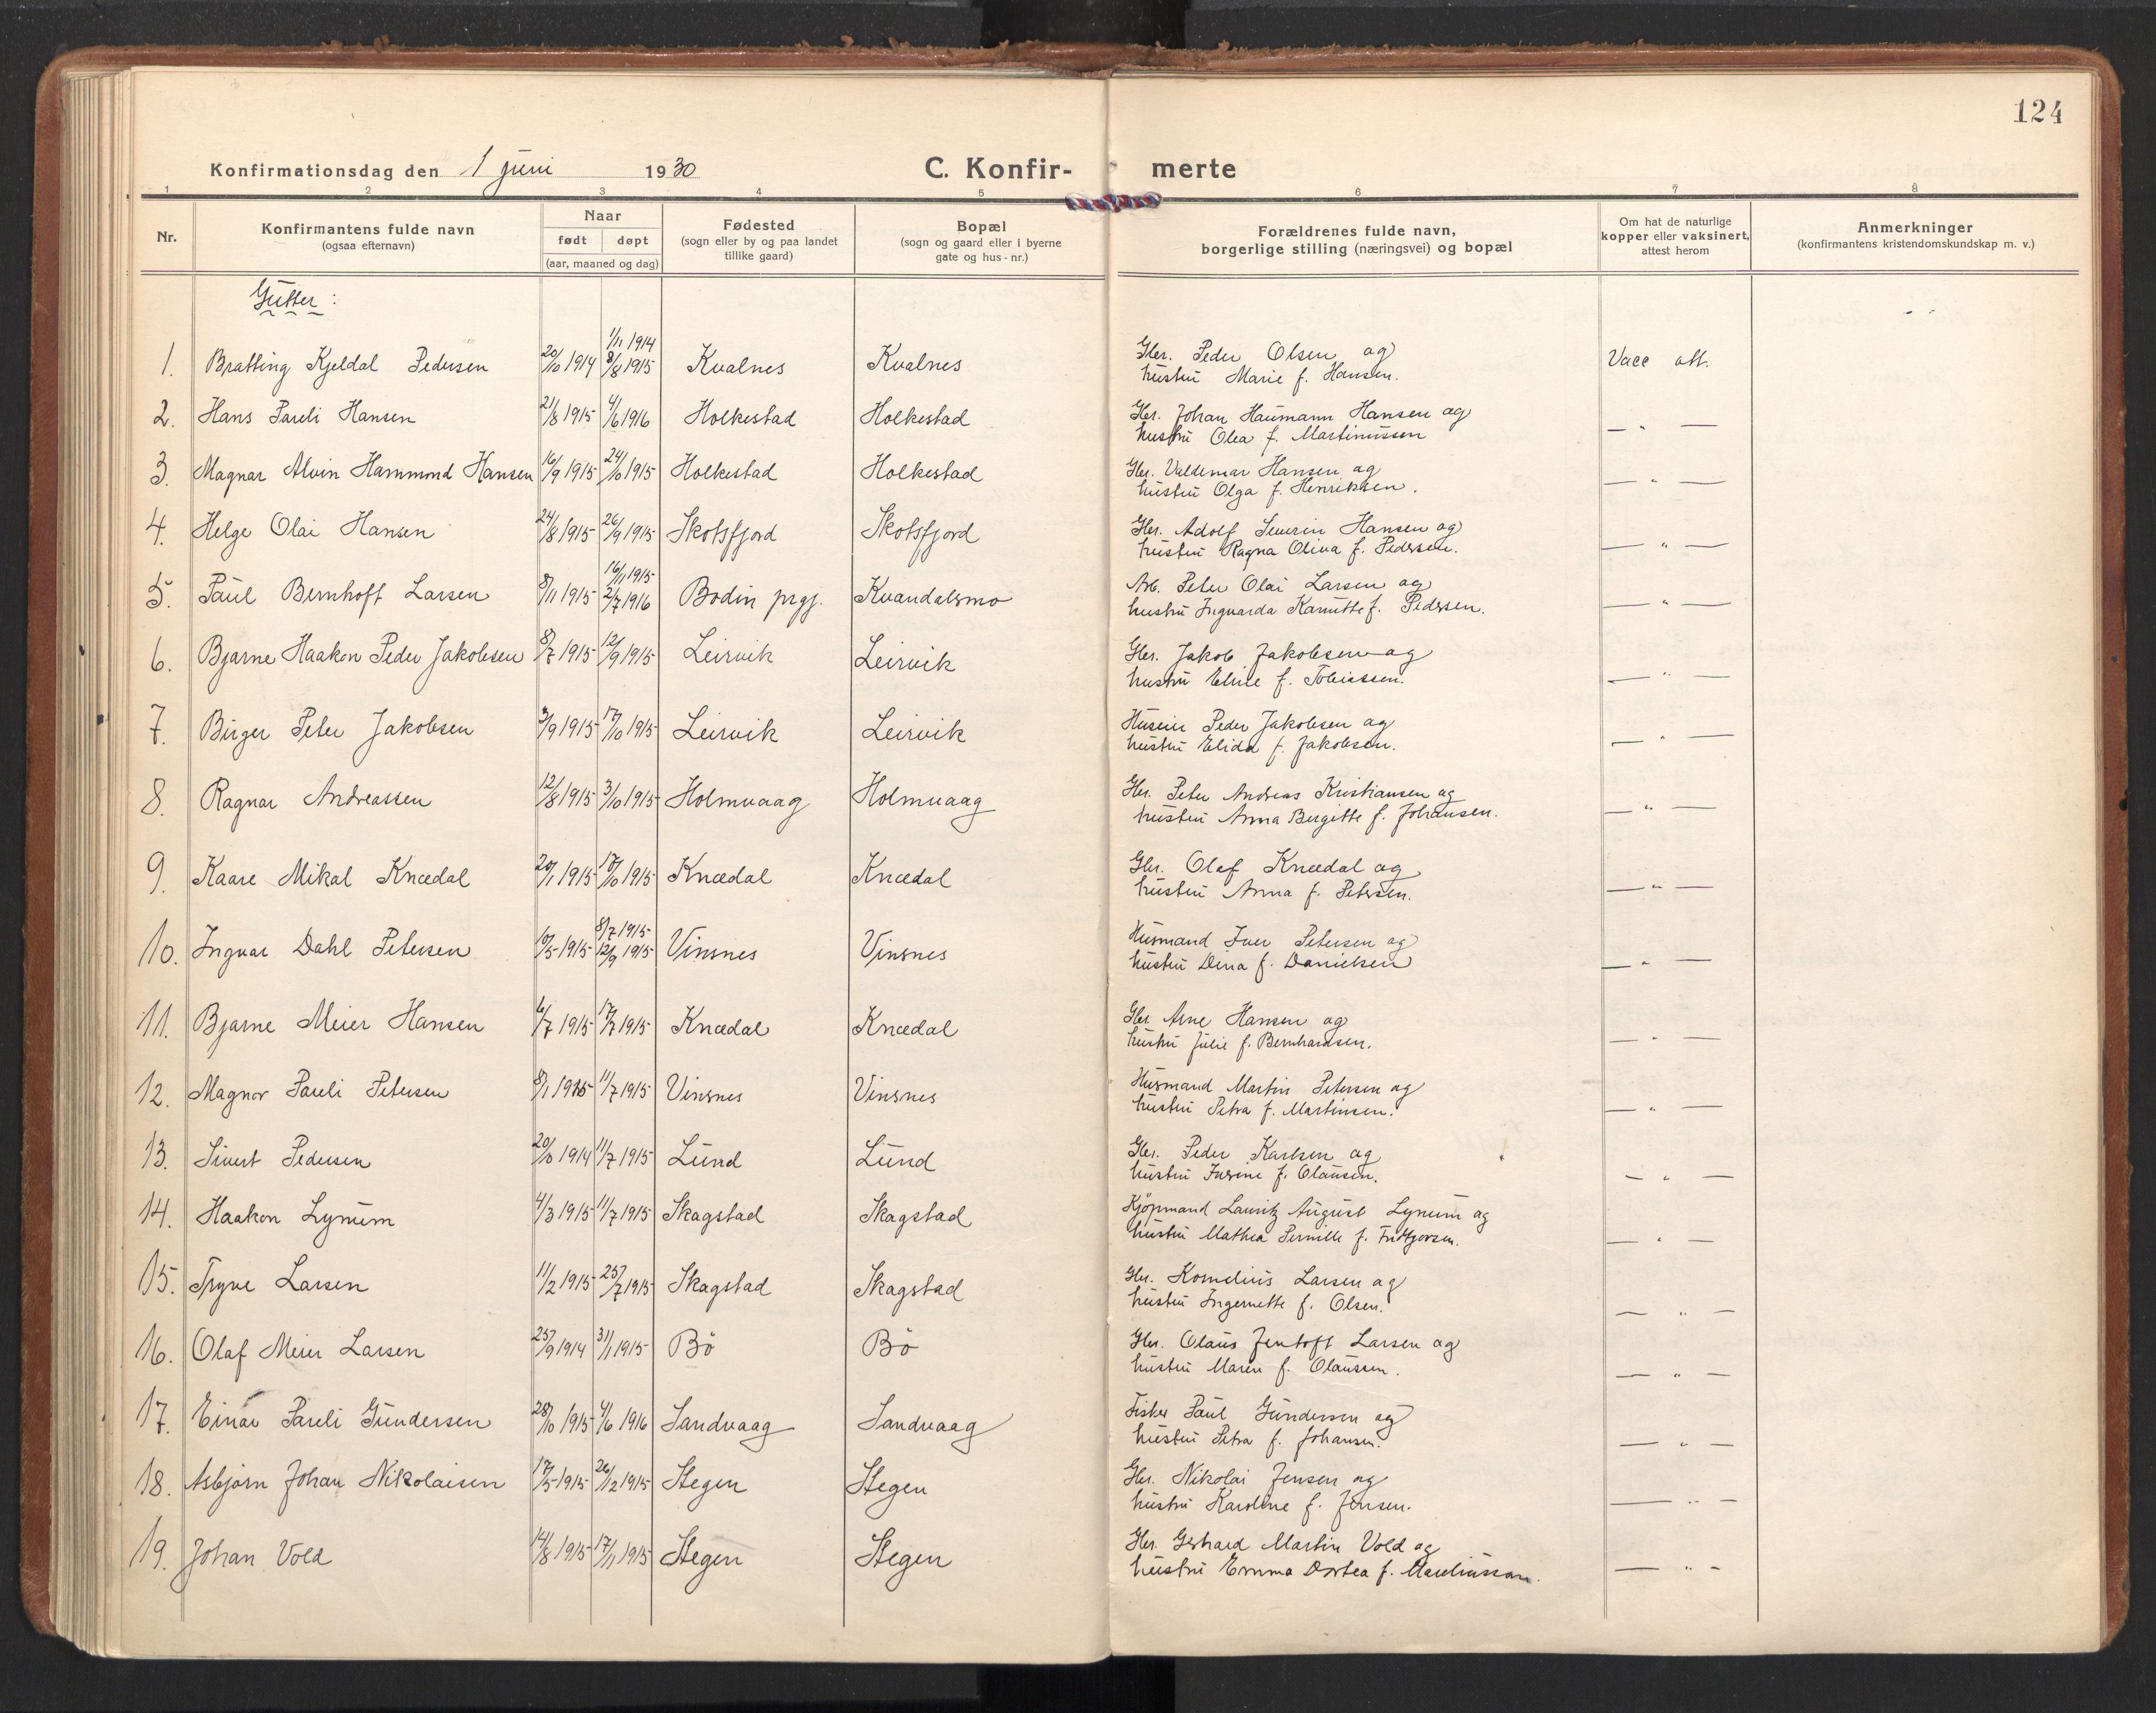 124
Konfirmationsdag den 1 juni 1930
C. Konfir- merte
1 2 3 4 5 6 7 8
Nr.
Konfirmantens fulde navn
(ogsaa efternavn)
Naar
født døpt
(aar, maaned og dag)
Fødested
(sogn eller by og paa landet
tillike gaard)
Bopæl
(sogn og gaard eller i byerne
gate og hus-nr.)
Forældrenes fulde navn,
borgerlige stilling (næringsvei) og bopæl
Om hat de naturlige
kopper eller vaksinert,
attest herom
Anmerkninger
(konfirmantens kristendomskundskap m. v.)
Gutter:
1. Bratting Kjeldal Pedersen 20/10 1914 1/11 1914 8/8 1915 Kvalnes Kvalnes Gbr. Peder Olsen og Vacc att.
hustru Marie f. Hansen.
2. Hans Pareli Hansen 21/8 1915 4/6 1916 Holkestad Holkestad Gbr. Johan Haumann Hansen og — " —
hustru Olea f. Martinussen
3. Magnar Alvin Hammond Hansen 16/9 1915 24/10 1915 Holkestad Holkestad Gbr. Valdemar Hansen og — " —
hustru Olga f. Henriksen.
4. Helge Olai Hansen 24/8 1915 26/9 1915 Skotsfjord Skotsfjord Gbr. Adolf Severin Hansen og — " —
hustru Ragna Oliva f. Pedersen.
5. Paul Bernhoft Larsen 8/11 1915 16/11 1915 2/7 1916 Bodin prgj. Kvandalsmo Arb. Peter Olai Larsen og — " —
hustru Ingvarda Kanutte f. Pedersen.
6. Bjarne Haakon Peder Jakobsen 8/7 1915 12/9 1915 Leirvik Leirvik Gbr. Jakob Jakobsen og — " —
hustru Eline f. Tobiassen.
7. Birger Peter Jakobsen 3/9 1915 17/10 1915 Leirvik Leirvik Huseier Peder Jakobsen og — " —
hustru Elida f. Jakobsen.
8. Ragnar Andreassen 12/8 1915 3/10 1915 Holmvaag Holmvaag Gbr. Peter Andreas Kristiansen og — " —
hustru Anna Birgitte f. Johansen.
9. Kaare Mikal Knædal 20/1 1915 17/10 1915 Knædal Knædal Gbr. Olaf Knædal og — " —
hustru Anna f. Petersen.
10. Ingvar Dahl Petersen 10/5 1915 8/7 1915 12/9 1915 Vinsnes Vinsnes Husmand Iver Petersen og — " —
hustru Dina f. Danielsen
11. Bjarne Meier Hansen 6/7 1915 17/7 1915 Knædal Knædal Gbr. Arne Hansen og — " —
hustru Julie f. Bernhardsen.
12. Magnor Pareli Petersen 8/1 1915 11/7 1915 Vinsnes Vinsnes Husmand Martin Petersen og — " —
hustru Petra f. Martinsen.
13. Sivert Pedersen 20/10 1914 11/7 1915 Lund Lund Gbr. Peder Karlsen og — " —
hustru f. Olausen.
14. Haakon Lynum 4/3 1915 11/7 1915 Skagstad Skagstad Kjøpmand Lauritz August Lynum og — " —
hustru Mathea Pernille f. Fridtjovsen.
15. Tryve Larsen 11/2 1915 25/7 1915 Skagstad Skagstad Gbr. Kornelius Larsen og — " —
hustru Ingernette f. Olsen.
16. Olaf Meier Larsen 25/9 1914 31/1 1915 Bö Bö Gbr. Olaus Jentoft Larsen og — " —
hustru Maren f. Olaussen.
17. Einar Pareli Gundersen 28/10 1915 4/6 1916 Sandvaag Sandvaag Fisker Paul Gundersen og — " —
hustru Petra f. Johansen.
18. Asbjørn Johan Nikolaisen 17/5 1915 26/12 1915 Stegen Stegen Gbr. Nikolai Jensen og — " —
hustru Karoline f. Jensen.
19. Johan Vold 14/8 1915 17/11 1915 Stegen Stegen Gbr. Gerhard Martin Vold og — " —
hustru Emma Dortea f.